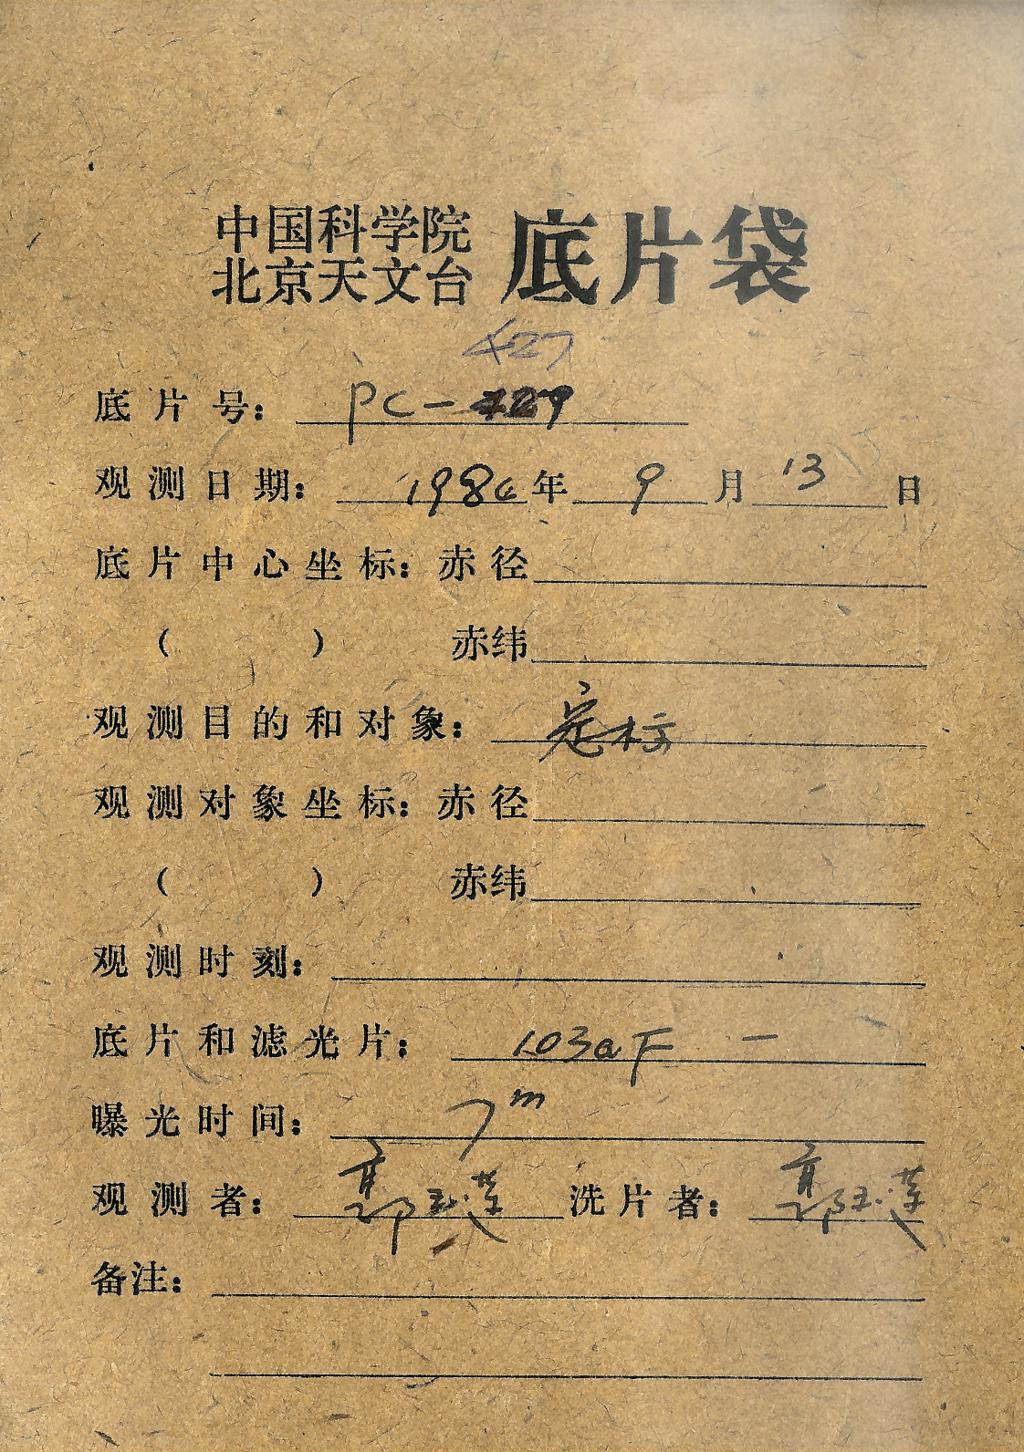 中国科学院
北京天文台 底片袋
427
底片号： PC-427
观测日期： 1984年 9月 13日
底片中心坐标：赤径
（ ） 赤纬
观测目的和对象： 定标
观测对象坐标：赤径
（ ） 赤纬
观测时刻：
底片和滤光片： 103aF —
曝光时间： 7m
观测者： 郭玉莲 洗片者： 郭玉莲
备注：